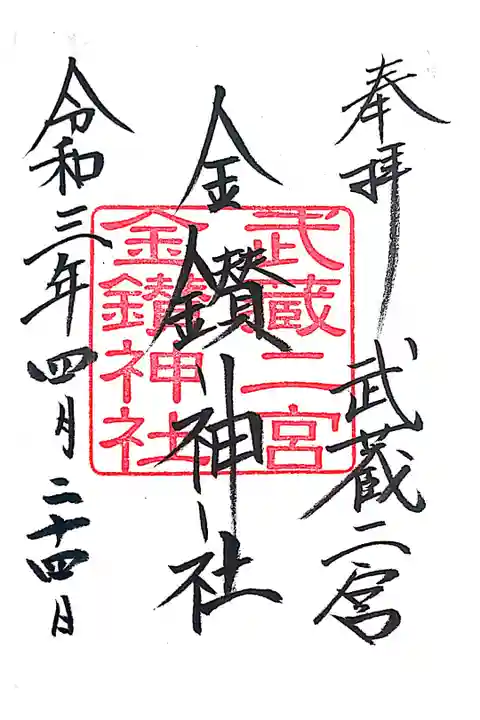 奉拝
武蔵二宮
金鑚神社
令和三年四月二十四日
武蔵二宮
金鑚神社